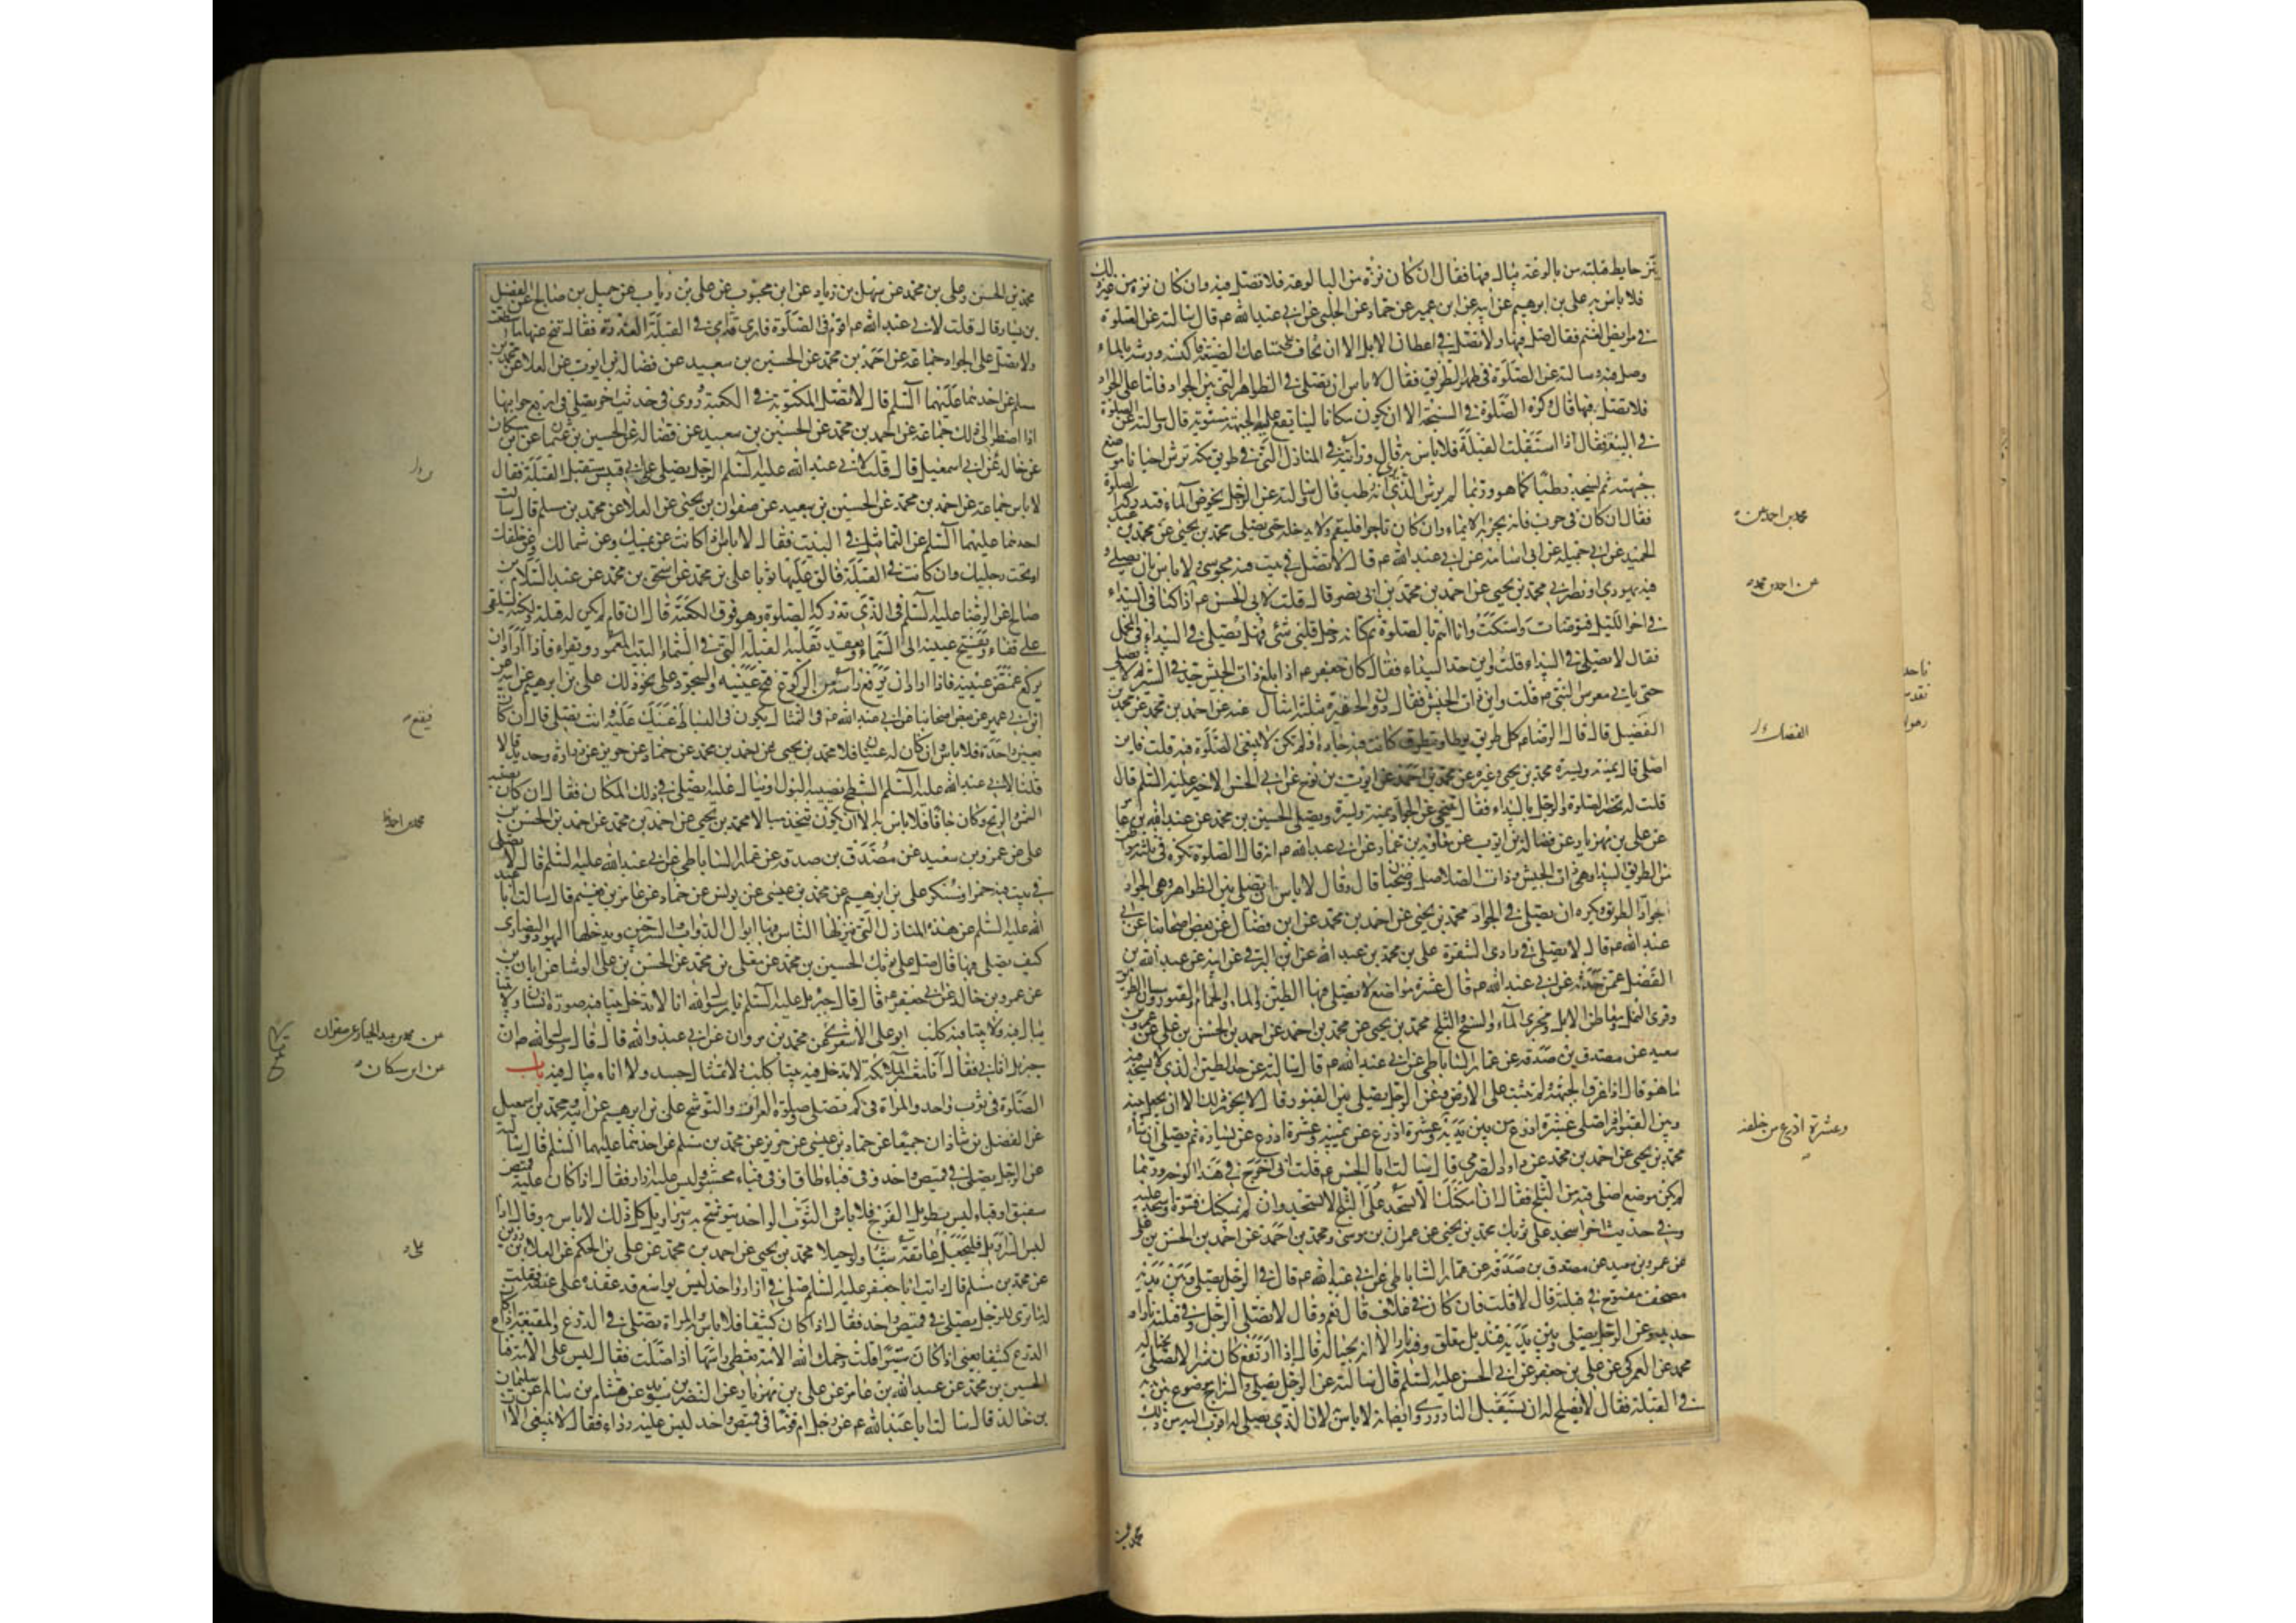 ينز حايط قبلته من بالوعة يبال فيها فقال ان كان نزه من البالوعة فلا تصل فيه وان كان نزه من غير ذلك
فلا باس به علي بن ابرهيم عن ابيه عن ابن عمير عن حماد عن الحلبي عن ابي عبد الله ع م قال سالته عن الصلوة
في مرابض الغنم فقال صل فيها ولا تصل في اعطان الابل الا ان تخاف على متاعك الضيعة فاكنسه ورشه بالماء
وصل فيه وسالته عن الصلوة في ظهر الطريق فقال لا باس ان تصلي في الظواهر التي بين الجواد فاما على الجواد
فلا تصل فيها قال وكره الصلوة في السبخة الا ان يكون مكانا لينا يقع عليه الجبهة مستوية قال وسالته عن الصلوة
في البيعة فقال اذا استقبلت القبلة فلا باس به قال ورايته في المنازل التي في طريق مكة يرش احيانا موضع
جبهته ثم يسجد رطبا كما هو وربما لم يرش الذي يرى انه رطب قال وسالته عن الرجل يخوض الماء فيدركه الصلوة
فقال ان كان في حرب فانه يجزيه الايماء وان كان تاجرا فليقم ولا يدخله حتى يصلي محمد بن يحيى عن محمد بن عبد
الحميد عن ابي جميلة عن ابي اسامة عن ابي عبد الله ع م قال لا تصل في بيت فيه مجوسي ولا باس بان يصلي و
فيه يهودي او نصراني محمد بن يحيى عن احمد بن محمد بن ابي نصر قال قلت لابي الحسن ع م انا كنا في البيداء
في اخر الليل فتوضات واستكت وانا اهم بالصلوة ثم كانه دخل قلبي شئ فهل يصلى في البيداء في المحمل
فقال لا تصلي في البيداء قلت واين حد البيداء فقال كان جعفر ع م اذا بلغ ذات الجيش جد في السير ثم لا يصلي
حتى ياتي معرس النبي ص قلت واين ذات الجيش فقال دون الحفيرة بثلثة اميال عنه عن احمد بن محمد عن محمد بن
الفضيل قال قال الرضا ع م كل طريق يوطا ويتطرق كانت فيه جادة او لم تكن لا ينبغي الصلوة فيه قلت فاين
اصلي قال يمنة ويسرة محمد بن يحيى وغيره عن محمد بن احمد عن ايوب بن نوح عن ابي الحسن الاخير عليه السلم قال
قلت له تحضر الصلوة والرجل بالبيداء فقال يتنحى عن الجواد يمنة ويسرة ويصلي الحسين بن محمد عن عبد الله بن عامر
عن علي بن مهزيار عن فضالة بن ايوب عن معاوية بن عمار عن ابي عبد الله ع م انه قال الصلوة تكره في ثلثة مواطن
من الطريق البيداء وهي ذات الجيش وذات الصلاصل وضجنان قال وقال لا باس ان يصلي بين الظواهر وهي الجواد
جواد الطريق ويكره ان يصلي في الجواد محمد بن يحيى عن احمد بن محمد عن ابن فضال عن بعض اصحابنا عن ابي
عبد الله ع م قال لا تصلي في وادي الشقرة علي بن محمد بن عبد الله عن ابن البرقي عن ابيه عن عبد الله بن
الفضل عمن حدثه عن ابي عبد الله ع م قال عشرة مواضع لا يصلى فيها الطين والماء والحمام والقبور ومسان الطريق
وقرى النمل ومعاطن الابل ومجرى الماء والسبخ والثلج محمد بن يحيى عن محمد بن احمد عن احمد بن الحسن بن علي عن عمرو بن
سعيد عن مصدق بن صدقة عن عمار الساباطي عن ابي عبد الله ع م قال سالته عن حد الطين الذي لا يسجد فيه
ما هو قال اذا غرق الجبهة ولم تثبت على الارض وعن الرجل يصلي بين القبور قال لا يجوز ذلك الا ان يجعل بينه
وبين القبور اذا صلى عشرة اذرع من بين يديه وعشرة اذرع عن يمينه وعشرة اذرع عن يساره ثم يصلي ان شاء
محمد بن يحيى عن احمد بن محمد عن داود الصرمي قال سالت ابا الحسن ع م قلت اني اخرج في هذا الوجه وربما
لم يكن موضع اصلي فيه من الثلج فقال ان امكنك ان لا تسجد على الثلج لا تسجد وان لم يمكنك فسوه واسجد عليه
وفي حديث اخر اسجد على ثوبك محمد بن يحيى عن عمران بن موسى ومحمد بن احمد عن احمد بن الحسن بن علي
عن عمرو بن سعيد عن مصدق بن صدقة عن عمار الساباطي عن ابي عبد الله ع م قال في الرجل يصلي وبين يديه
مصحف مفتوح في قبلته قال لا قلت فان كان في غلاف قال نعم وقال لا تصلي الرجل وفي قبلته نار او
حديد وعن الرجل يصلي وبين يديه قنديل معلق وفيه نار الا انه بحياله قال اذا ارتفع كان شرا لا تصلي بحياله
محمد عن العمركي عن علي بن جعفر عن ابي الحسن عليه السلم قال سالته عن الرجل يصلي والسراج موضوع بين يديه
في القبلة فقال لا يصلح له ان يستقبل النار وروى ايضا انه لا باس لان الذي يصلي له اقرب اليه من ذلك
محمد بن احمد بن
عن احمد بن محمد
الفضل
وعشرة اذرع من خلفه
محمد بن
محمد بن الحسن وعلي بن محمد عن سهل بن زياد عن ابن محبوب عن علي بن رئاب عن جميل بن صالح عن الفضيل
بن يسار قال قلت لابي عبد الله ع م اقوم في الصلوة فارى قدامي في القبلة العذرة فقال تنح عنها ما استطعت
ولا تصل على الجواد جماعة عن احمد بن محمد عن الحسين بن سعيد عن فضالة بن ايوب عن العلا عن محمد بن
مسلم عن احدهما عليهما السلم قال لا تصل المكتوبة في الكعبة وروي في حديث اخر يصلي في اربع جوانبها
اذا اضطر الى ذلك جماعة عن احمد بن محمد عن الحسين بن سعيد عن فضالة عن الحسين بن عثمان عن ابن مسكان
عن خالد عن ابي اسمعيل قال قلت لابي عبد الله عليه السلم الرجل يصلي على ابي قبيس مستقبل القبلة فقال
لا باس جماعة عن احمد بن محمد عن الحسين بن سعيد عن صفوان بن يحيى عن العلا عن محمد بن مسلم قال سالت
احدهما عليهما السلم عن التماثيل في البيت فقال لا باس اذا كانت عن يمينك وعن شمالك وعن خلفك
او تحت رجليك وان كانت في القبلة فالق عليها ثوبا علي بن محمد عن اسحق بن محمد عن عبد السلام بن
صالح عن الرضا عليه السلم في الذي تدركه الصلوة وهو فوق الكعبة قال ان قام لم يكن له قبلة ولكنه يستلقي
على قفاه ويفتح عينيه الى السماء ويعقد بقلبه القبلة التي في السماء البيت المعمور ويقرء فاذا اراد ان
يركع غمض عينيه فاذا اراد ان يرفع راسه من الركوع فتح عينيه والسجود على نحو ذلك علي بن ابرهيم عن ابيه عن
ابن ابي عمير عن بعض اصحابنا عن ابي عبد الله ع م في التمثال يكون في البساط عينك عليه وانت تصلي قال ان كان
بعين واحدة فلا باس وان كان له عينان فلا محمد بن يحيى عن احمد بن محمد عن حماد عن حريز عن زرارة وحديد قالا
قلنا لابي عبد الله عليه السلم السطح يصيبه البول او يبال عليه ايصلي في ذلك المكان فقال ان كان يصيبه
الشمس والريح وكان جافا فلا باس به الا ان يكون يتخذ مبالا محمد بن يحيى عن احمد بن محمد عن احمد بن الحسن بن
علي عن عمرو بن سعيد عن مصدق بن صدقة عن عمار الساباطي عن ابي عبد الله عليه السلم قال لا يصلى
في بيت فيه خمر او مسكر علي بن ابرهيم عن محمد بن عيسى عن يونس عن حماد عن عامر بن نعيم قال سالت ابا عبد
الله عليه السلم عن هذه المنازل التي ينزلها الناس فيها ابوال الدواب والسرجين ويدخلها اليهود والنصارى
كيف يصلي فيها قال صل على ثوبك الحسين بن محمد عن معلى بن محمد عن الحسن بن علي الوشا عن ابان
عن عمرو بن خالد عن ابي جعفر ع م قال قال جبرئل عليه السلم يا رسول الله انا لا ندخل بيتا فيه صورة انسان ولا بيتا
يبال فيه ولا بيتا فيه كلب ابو علي الاشعري عن محمد بن مروان عن ابي عبد الله قال قال رسول الله ص ان
جبرئل اتاني فقال انا معشر الملائكة لا ندخل فيه بيتا كلب ولا تمثال جسد ولا اناء يبال فيه باب
الصلوة في ثوب واحد والمراة في كم تصلي وصلوة العراة والتوشح علي بن ابرهيم عن ابيه ومحمد بن اسمعيل
عن الفضل بن شاذان جميعا عن حماد بن عيسى عن حريز عن محمد بن مسلم عن احدهما عليهما السلم قال سالته
عن الرجل يصلي في قميص واحد وفي قباء طاق او في قباء محشو وليس عليه ازار فقال اذا كان عليه قميص
سفيق او قباء ليس بطويل الفرج فلا باس والثوب الواحد يتوشح به وسراويل كل ذلك لا باس به وقال اذا
لبس السراويل فليجعل على عاتقه شيئا ولو حبلا محمد بن يحيى عن احمد بن محمد عن علي بن الحكم عن العلا بن رزين
عن محمد بن مسلم قال رايت ابا جعفر عليه السلم صلى في ازار واحد ليس بواسع قد عقده على عنقه فقلت
له ما ترى للرجل يصلي في قميص واحد فقال اذا كان كثيفا فلا باس والمراة تصلي في الدرع والمقنعة اذا كان
الدرع كثيفا يعني اذا كان ستيرا قلت رحمك الله الامة تغطي راسها اذا صلت فقال ليس على الامة قناع
الحسين بن محمد عن عبد الله بن عامر عن علي بن مهزيار عن النضر بن سويد عن هشام بن سالم عن سليمان
بن خالد قال سالت ابا عبد الله ع م عن رجل ام قوما في قميص واحد ليس عليه رداء فقال لا ينبغي الا
فيقع
محمد بن احمد
عن محمد بن عبد الجبار عن صفوان
عن ابن مسكان
على